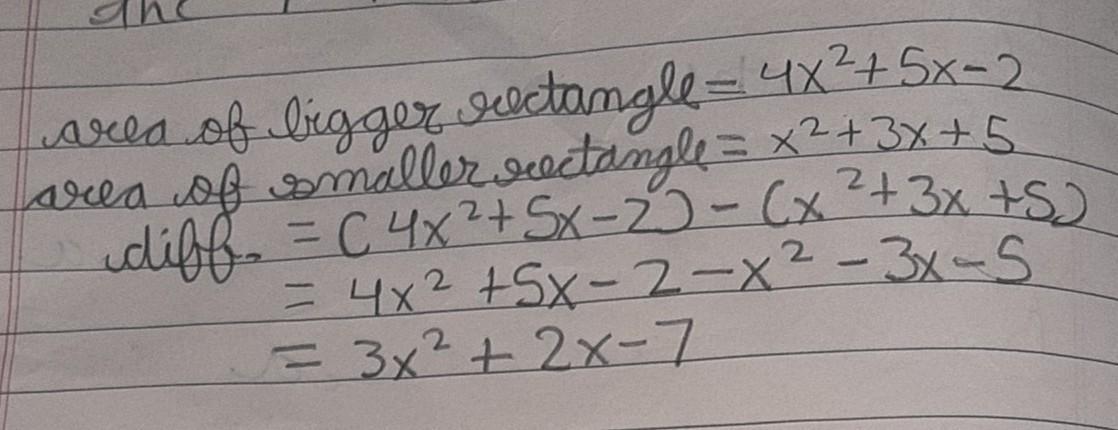 the
area of bigger rectangle = 4x² + 5x - 2
area of smaller rectangle = x² + 3x + 5
diff. = (4x² + 5x - 2) - (x² + 3x + 5)
= 4x² + 5x - 2 - x² - 3x - 5
= 3x² + 2x - 7